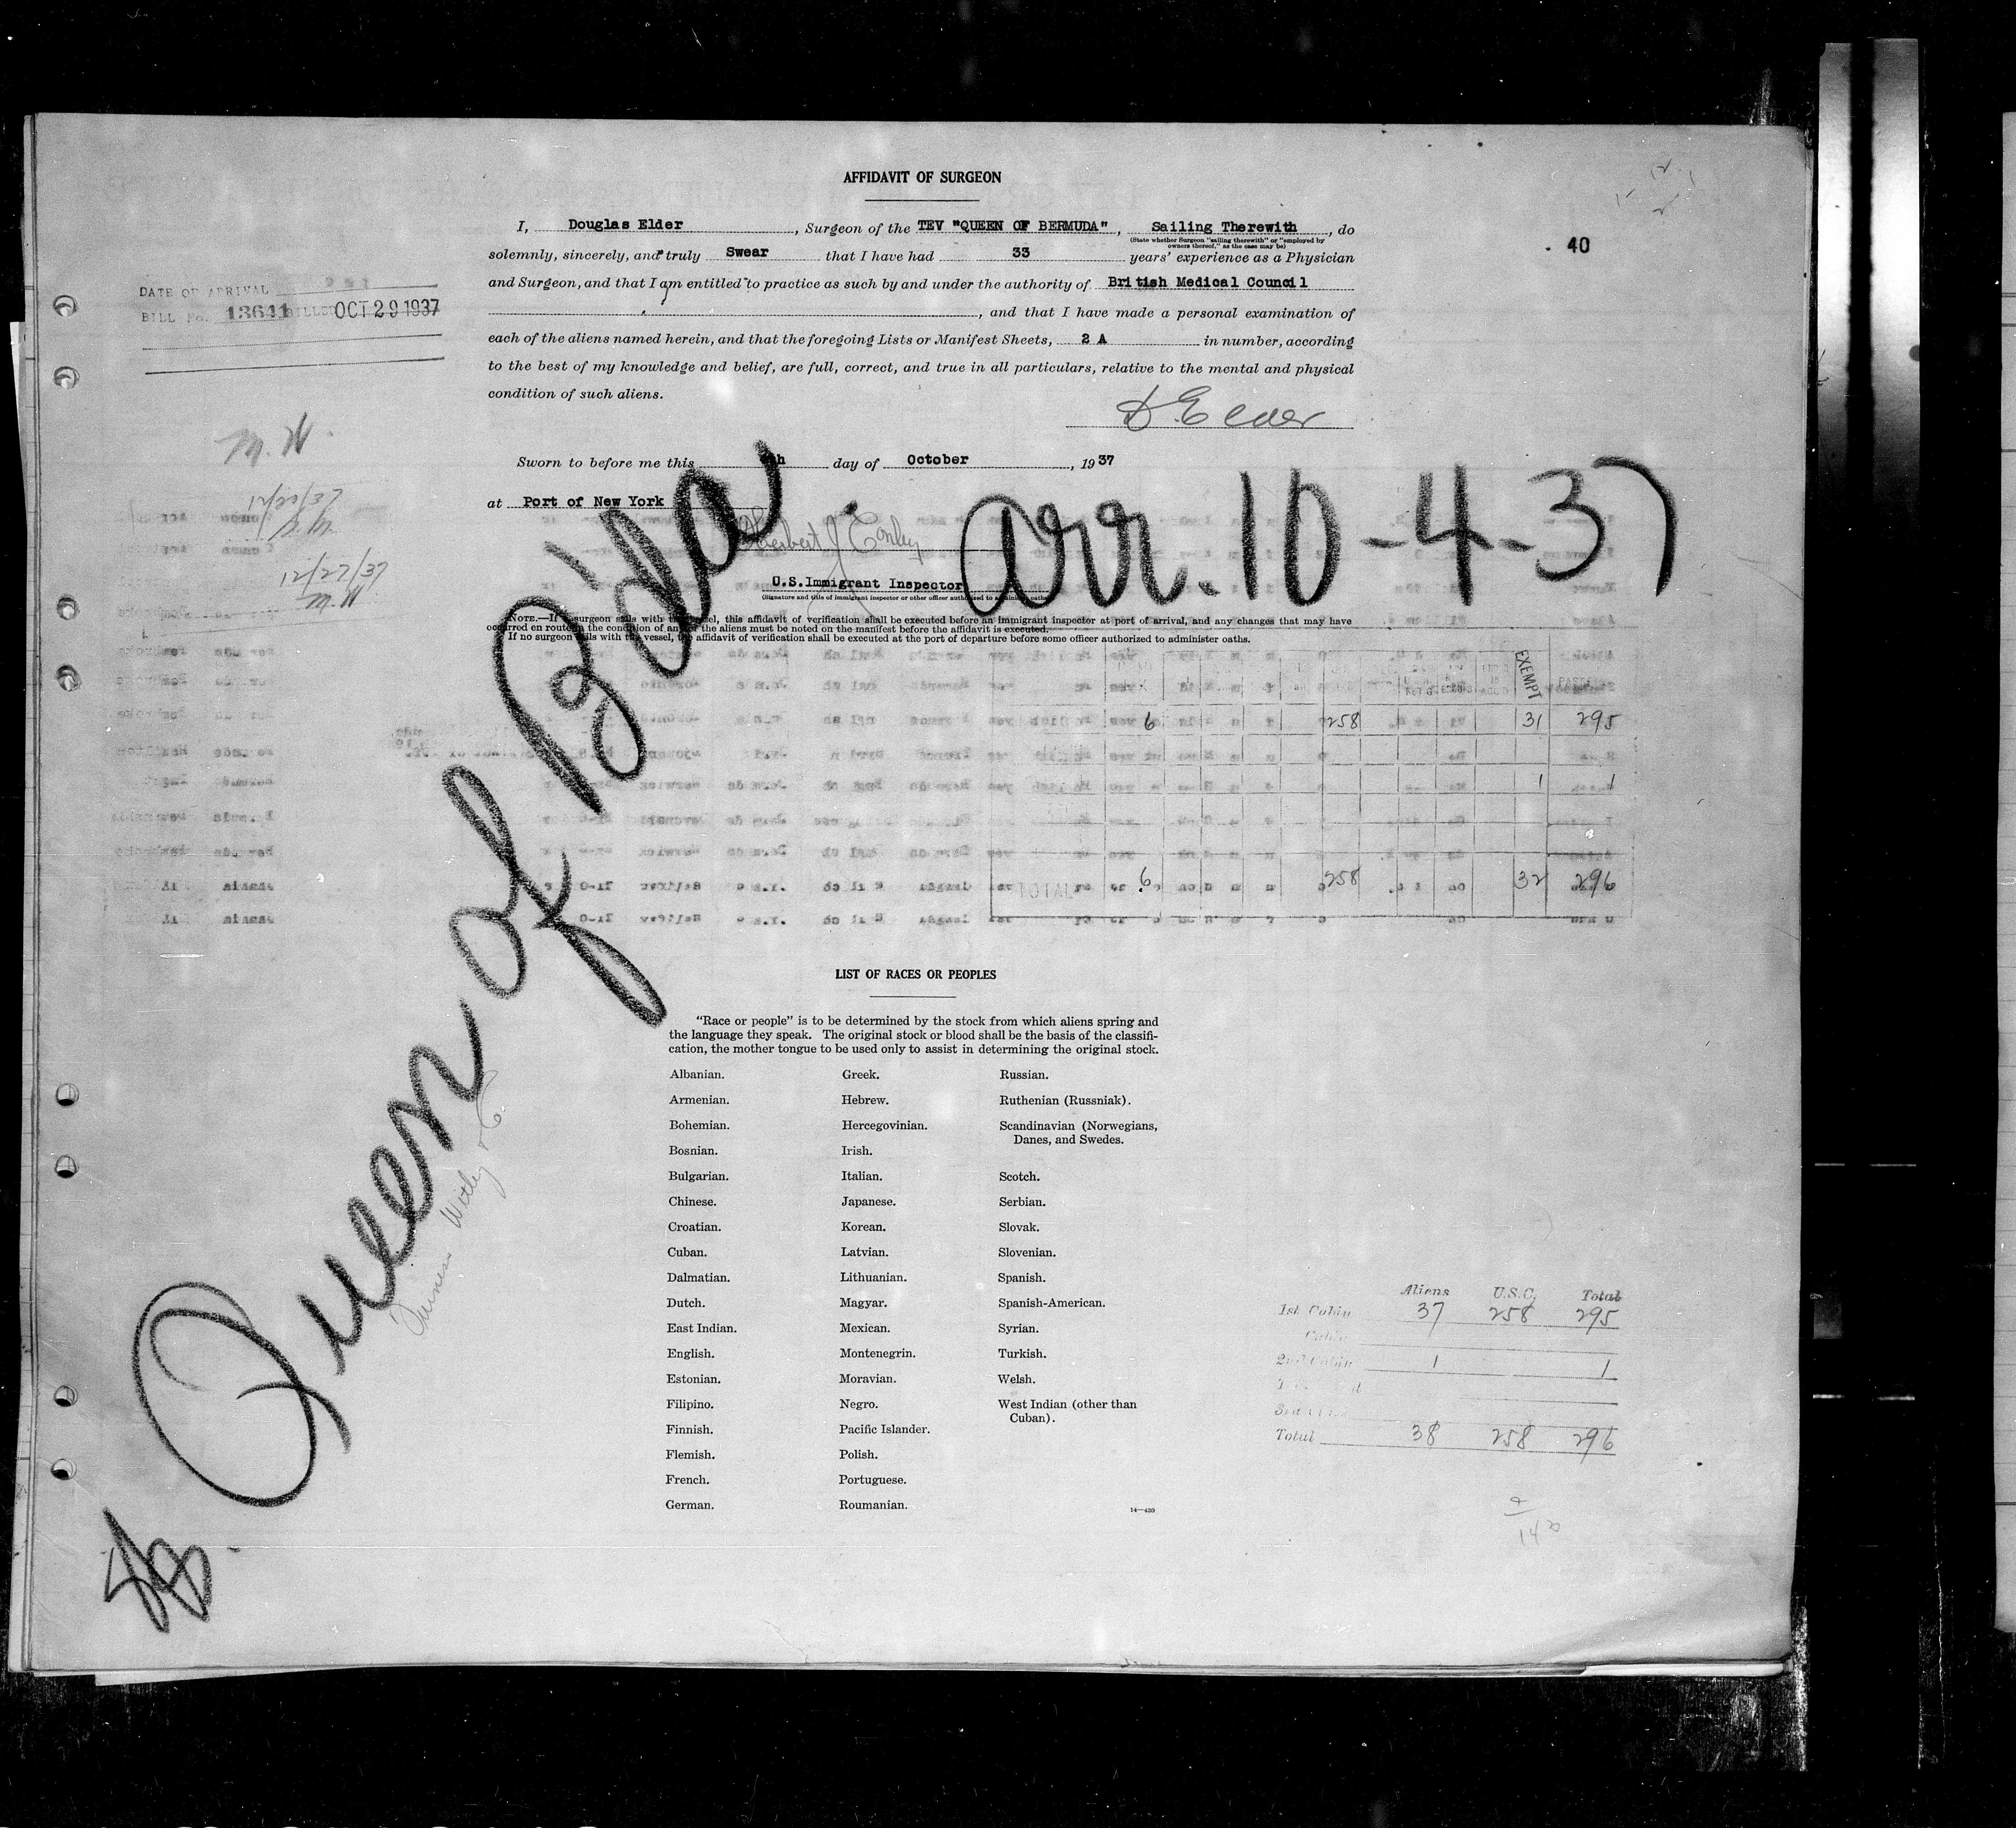 AFFIDAVIT OF SURGEON
I, Douglas Elder, Surgeon of the TEV "QUEEN OF BERMUDA", Sailing Therewith, do
(State whether Surgeon "sailing therewith" or "employed by
owners thereof," as the case may be)
40
solemnly, sincerely, and truly Swear that I have had 33 years' experience as a Physician
and Surgeon, and that I am entitled to practice as such by and under the authority of British Medical Council
, and that I have made a personal examination of
each of the aliens named herein, and that the foregoing Lists or Manifest Sheets, 2 A in number, according
to the best of my knowledge and belief, are full, correct, and true in all particulars, relative to the mental and physical
condition of such aliens.
D. Elder
DATE OF ARRIVAL
BILL No. 13641 BILLED OCT 29 1937
M. W.
12/20/37
12/27/37
M. W
Sworn to before me this 4th day of October, 1937
at Port of New York
Herbert J Conley
U.S. Immigrant Inspector
(Signature and title of immigrant inspector or other officer authorized to administer oaths)
arr. 10-4-37
Queen of B'da
NOTE.—If surgeon sails with the vessel, this affidavit of verification shall be executed before an immigrant inspector at port of arrival, and any changes that may have
occurred en route in the condition of any of the aliens must be noted on the manifest before the affidavit is executed.
If no surgeon sails with the vessel, the affidavit of verification shall be executed at the port of departure before some officer authorized to administer oaths.
EXEMPT
6 258 31 295
1 1
TOTAL 6 258 32 296
LIST OF RACES OR PEOPLES
"Race or people" is to be determined by the stock from which aliens spring and
the language they speak. The original stock or blood shall be the basis of the classifi-
cation, the mother tongue to be used only to assist in determining the original stock.
Albanian. Greek. Russian.
Armenian. Hebrew. Ruthenian (Russniak).
Bohemian. Hercegovinian. Scandinavian (Norwegians,
Danes, and Swedes.
Bosnian. Irish.
Bulgarian. Italian. Scotch.
Chinese. Japanese. Serbian.
Croatian. Korean. Slovak.
Cuban. Latvian. Slovenian.
Dalmatian. Lithuanian. Spanish.
Dutch. Magyar. Spanish-American.
East Indian. Mexican. Syrian.
English. Montenegrin. Turkish.
Estonian. Moravian. Welsh.
Filipino. Negro. West Indian (other than
Cuban).
Finnish. Pacific Islander.
Flemish. Polish.
French. Portuguese.
German. Roumanian.
14—430
Aliens U.S.C. Total
1st Cabin 37 258 295
Cabin
2nd Cabin 1 1
Total 38 258 296